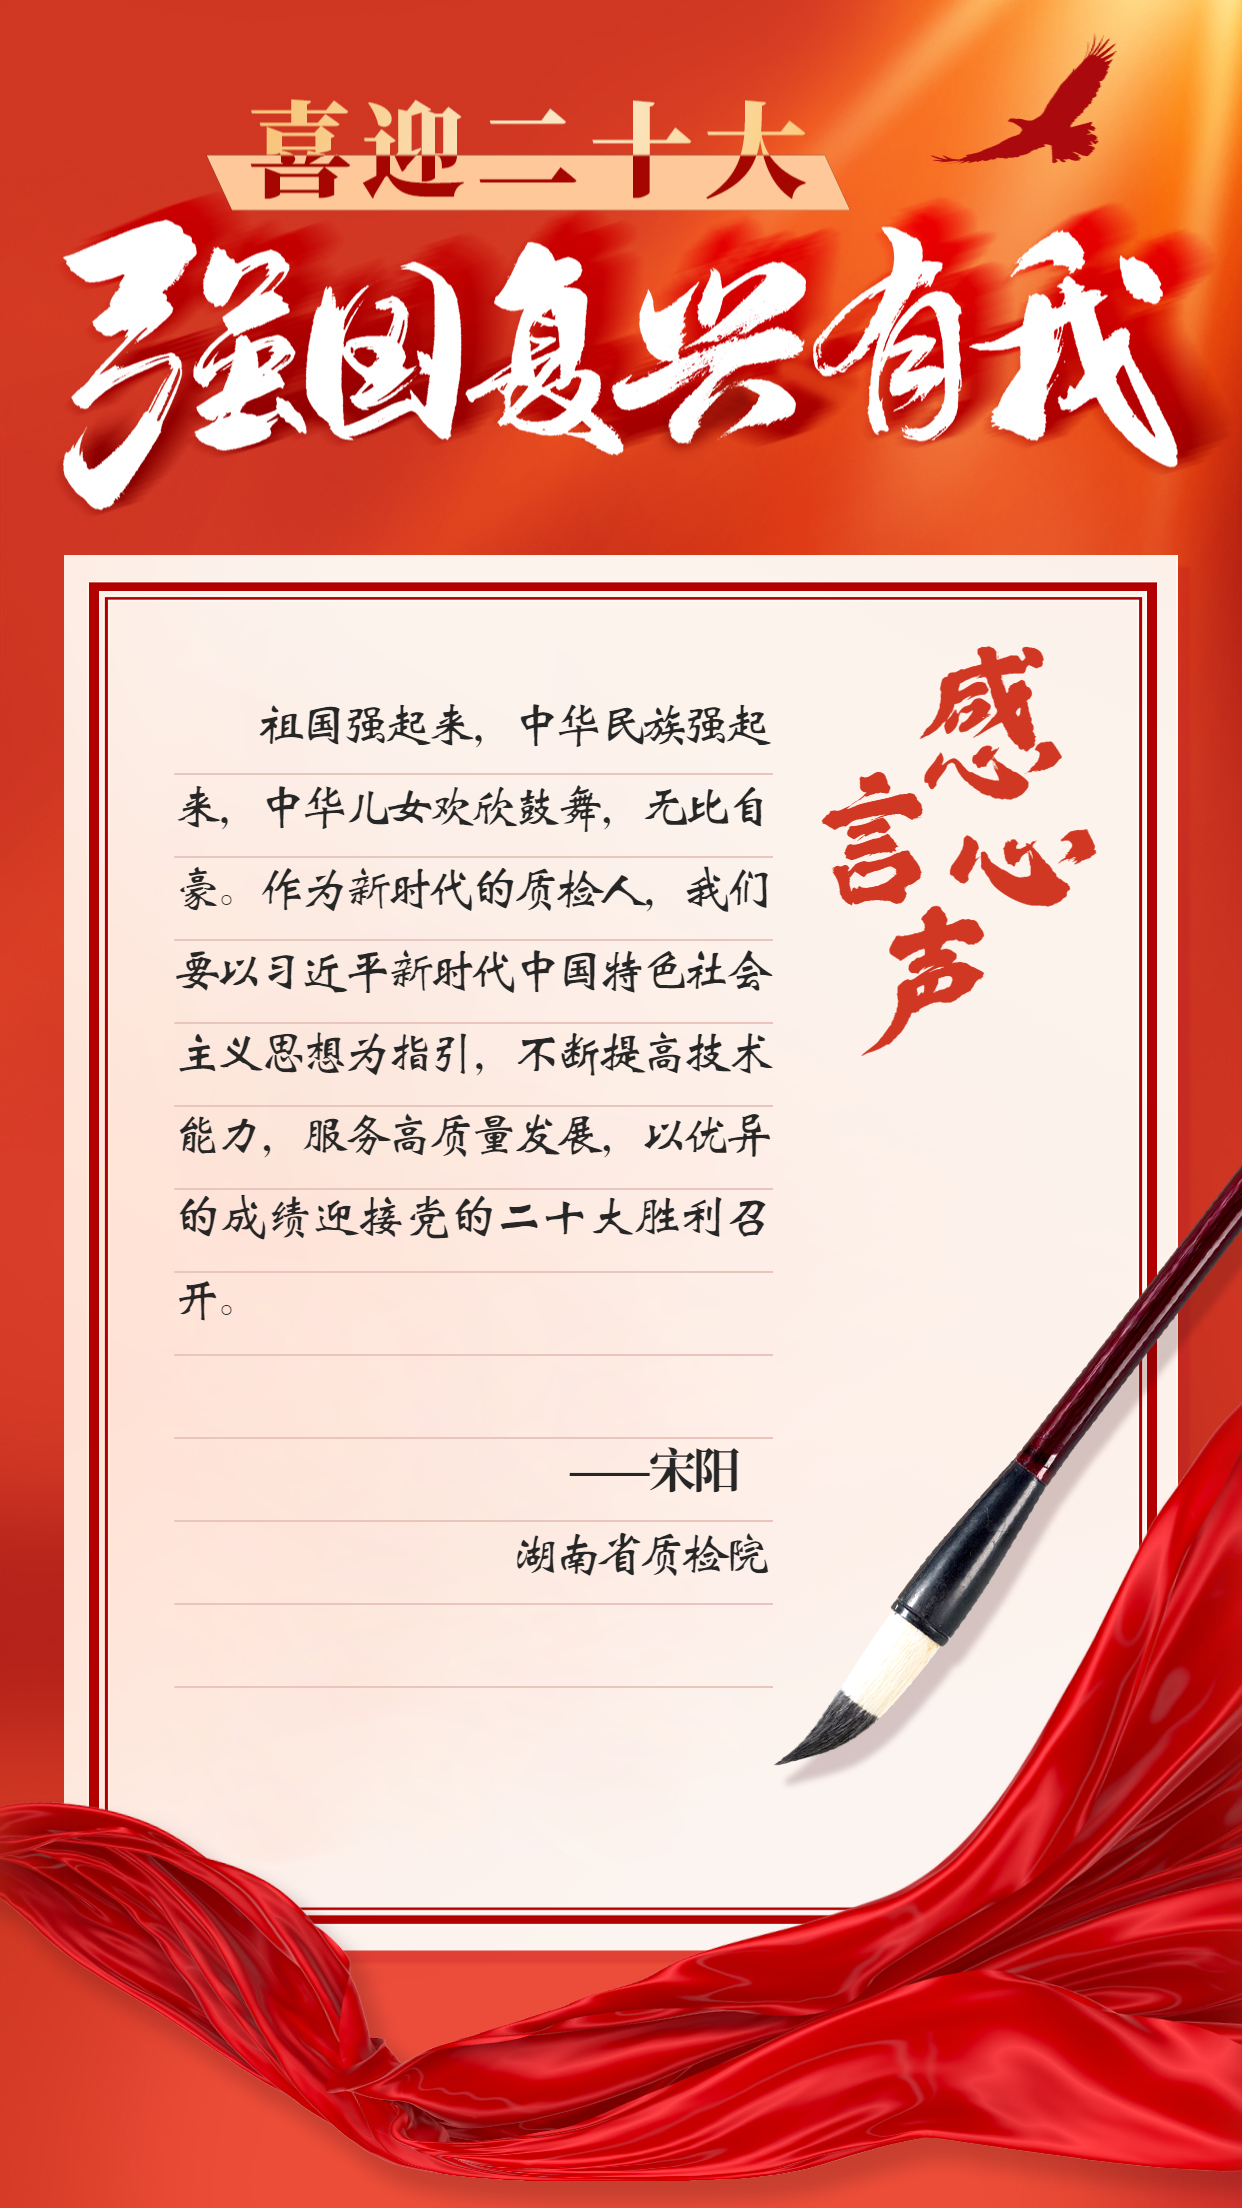 喜迎二十大
强国复兴有我
感言心声
祖国强起来，中华民族强起
来，中华儿女欢欣鼓舞，无比自
豪。作为新时代的质检人，我们
要以习近平新时代中国特色社会
主义思想为指引，不断提高技术
能力，服务高质量发展，以优异
的成绩迎接党的二十大胜利召
开。
——宋阳
湖南省质检院